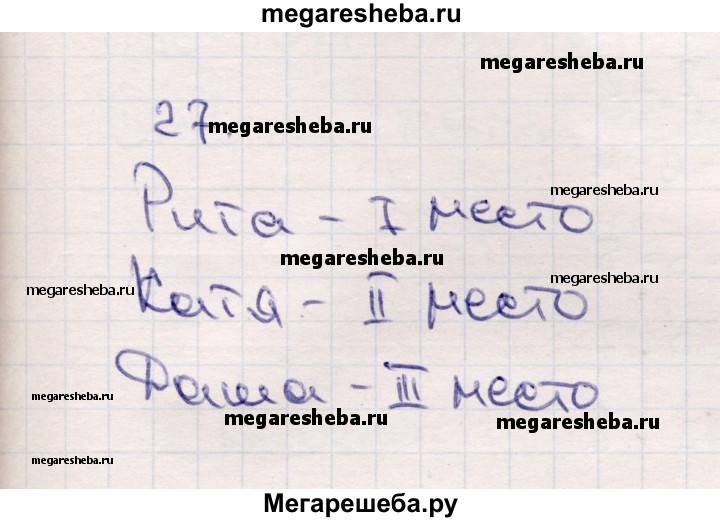 megaresheba.ru
megaresheba.ru
27.
megaresheba.ru
megaresheba.ru
Рита - I место
megaresheba.ru
megaresheba.ru
megaresheba.ru
Катя - II место
megaresheba.ru
Даша - III место
megaresheba.ru
megaresheba.ru
megaresheba.ru
megaresheba.ru
Мегарешеба.ру